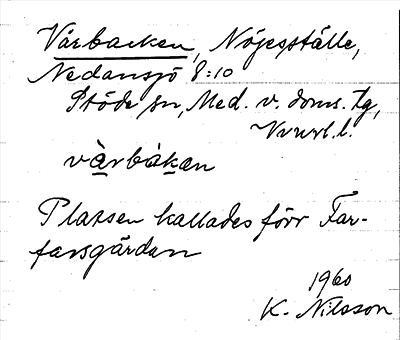 Vårbacken, Nöjesställe,
Nedansjö 8:10
Stöde sn, Med. v. doms. tg,
Vvnrl. l.
vàrbákan
Platsen kallades förr Far-
farsgården
1960
K. Nilsson